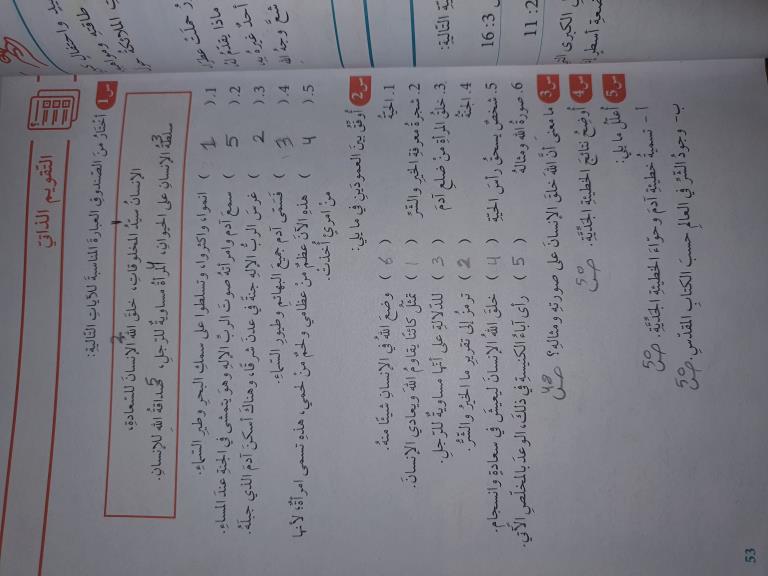 التقويم الذاتي
س1 أختارُ منَ الصّندوقِ العبارةَ المناسبةَ للآياتِ التّاليةِ:
الإنسانُ سيّدُ المخلوقاتِ، خلقَ اللهُ الإنسانَ للسّعادةِ،
سلطةُ الإنسانِ على الحيوانِ، المرأةُ مساويةٌ للرّجلِ، صداقةُ اللهِ للإنسانِ.
1. ( 1 ) انموا، واكثروا، وتسلطوا على سمكِ البحرِ وطيرِ السّماءِ.
2. ( 5 ) سمعَ آدم وامرأتهُ صوتَ الربِّ الإلهِ وهو يتمشى في الجنةِ عندَ المساءِ.
3. ( 2 ) غرسَ الربُّ الإلهُ جنةً في عدنَ شرقًا، وهناكَ أسكنَ آدمَ الذي جبلَهُ.
4. ( 3 ) فسَمّى آدم جميعَ البهائمِ وطيورِ السَّماءِ.
5. ( 4 ) هذهِ الآنَ عظمٌ منْ عظامي ولحمٌ منْ لحمي، هذهِ تسمى امرأةً، لأنها
منْ امرئٍ أُخذتْ.
س2 أوفّقُ بينَ العمودَينِ في ما يلي:
1. الحيّة ( 6 ) وضعَ اللهُ في الإنسانِ شيئًا منهُ.
2. شجرةُ معرفةِ الخيرِ والشّرِّ ( 1 ) تمثّلُ كائنًا يقاومُ اللهَ ويعادي الإنسانَ.
3. خلقُ المرأةِ منْ ضلعِ آدمَ ( 3 ) للدّلالةِ على أنّها مساويةٌ للرّجلِ.
4. الجنّة ( 2 ) ترمزُ إلى تقريرِ ما الخيرُ والشّرُّ.
5. شخصٌ يسحقُ رأسَ الحيّةِ ( 4 ) خلقَ اللهُ الإنسانَ ليعيشَ في سعادةٍ وانسجامٍ.
6. صورةُ اللهِ ومثالُهُ ( 5 ) رأى آباءُ الكنيسةِ في ذلكَ، الوعدَ بالمخلّصِ الآتي.
س3 ما معنى أنَّ اللهَ خلقَ الإنسانَ على صورتِهِ ومثالِهِ؟
س4 أوضّحُ نتائجَ الخطيئةِ الجَدّيّةِ. ص50
س5 أعلّلُ ما يلي:
أ - تسميةُ خطيئةِ آدمَ وحوّاءَ الخطيئةَ الجدّيّةَ. ص50
ب- وجودُ الشّرِّ في العالمِ حسبَ الكتابِ المقدّسِ. ص50
53
16:3
11:2
التّالية: